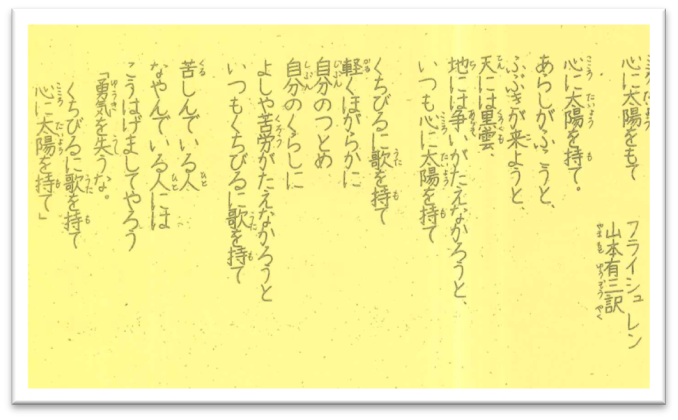 心に太陽をもて
フライシュレン
山本有三訳
心に太陽を持て。
あらしがふこうと、
ふぶきが来ようと、
天には黒雲、
地には争いがたえなかろうと、
いつも心に太陽を持て
くちびるに歌を持て
軽くほがらかに
自分のつとめ
自分のくらしに
よしや苦労がたえなかろうと
いつもくちびるに歌を持て
苦しんでいる人
なやんでいる人には
こうはげましてやろう
「勇気を失うな。
くちびるに歌を持て
心に太陽を持て」